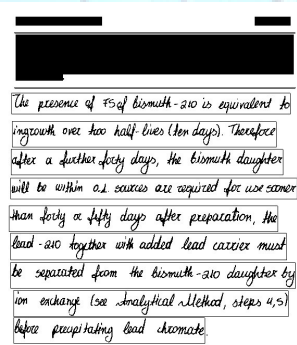 The presence of 75% of bismuth-210 is equivalent to
ingrowth over two half-lives (ten days). Therefore
after a further forty days, the bismuth daughter
will be within 0.1. sources are required for use sooner
than forty or fifty days after preparation, the
lead-210 together with added lead carrier must
be separated from the bismuth-210 daughter by
ion exchange (see Analytical Method, steps 4,5)
before precipitating lead chromate.